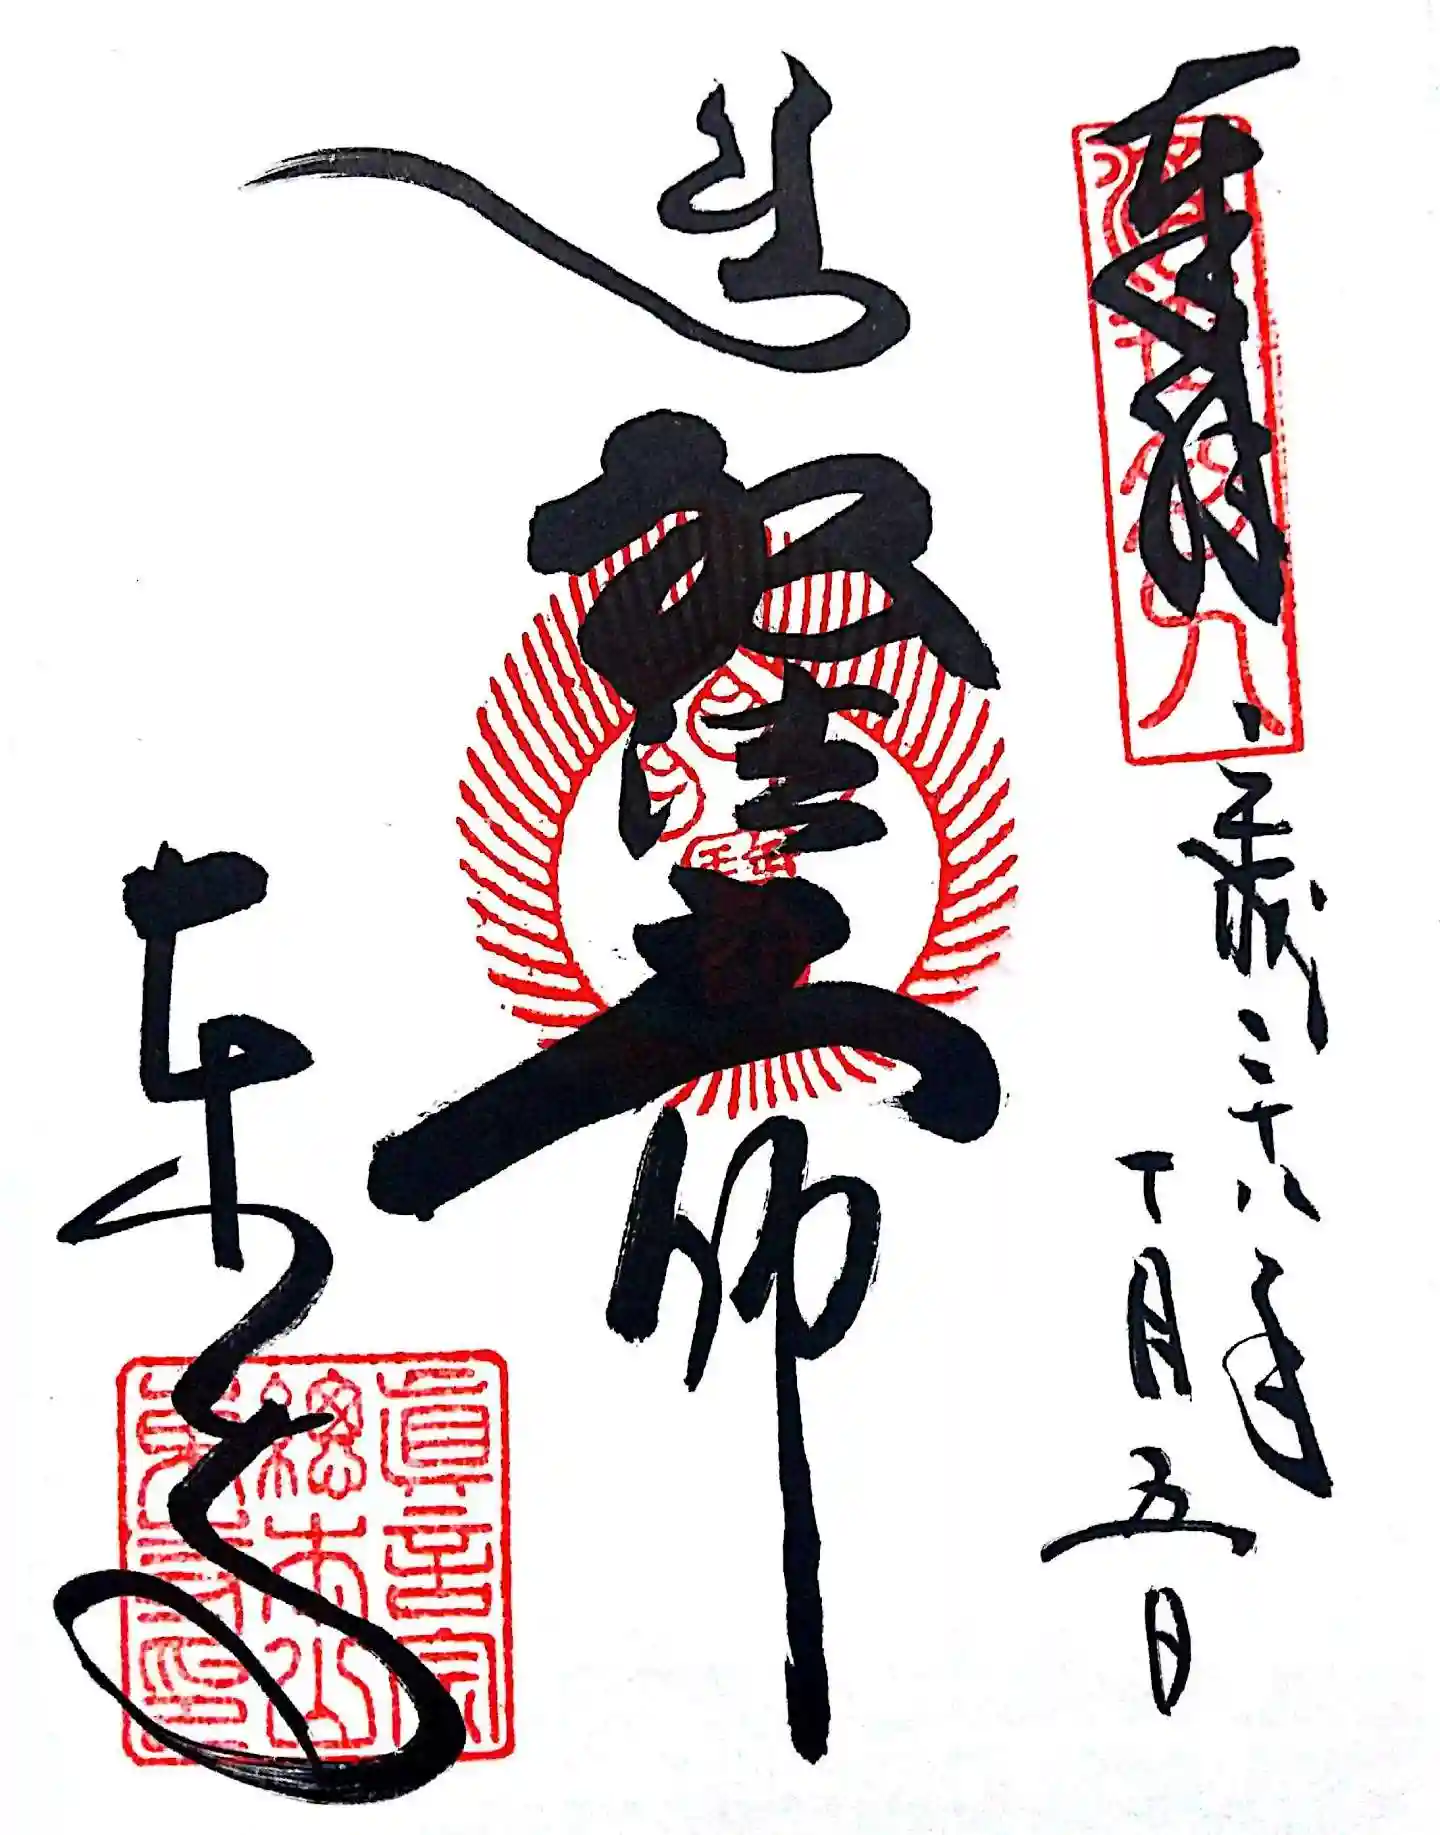 奉拝
平成二十八年
十月五日
弘法大師
東寺
眞言宗
總本山
東寺印